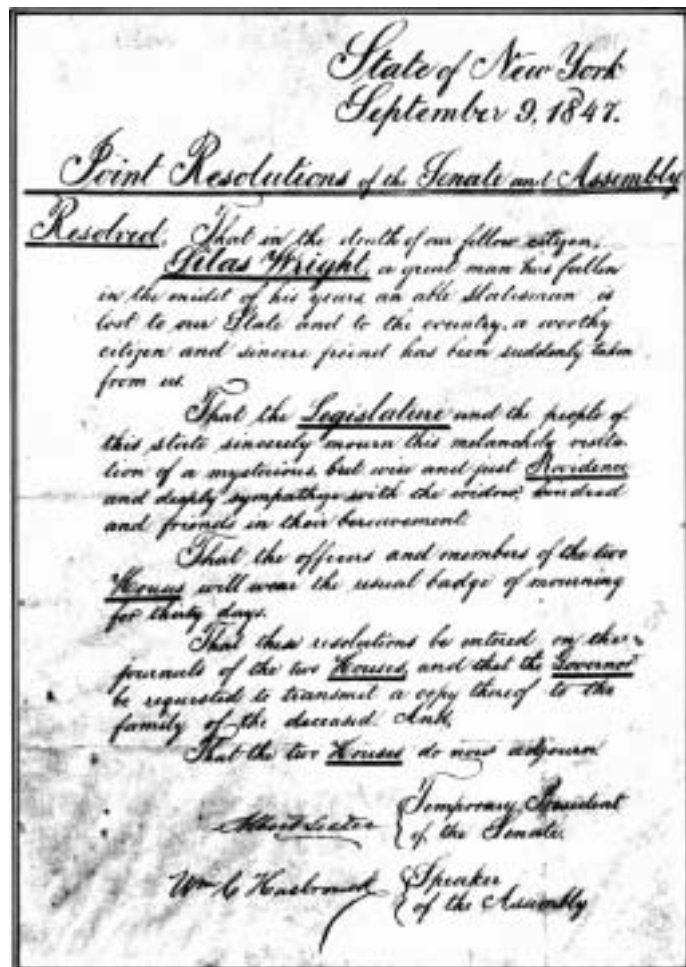 State of New York
September 9, 1847.
Joint Resolutions of the Senate and Assembly
Resolved, That in the death of our fellow citizen,
Silas Wright, a great man has fallen
in the midst of his years, an able Statesman is
lost to our State and to the country, a worthy
citizen and sincere friend has been suddenly taken
from us.
That the Legislature and the people of
this state sincerely mourn this melancholy visita-
tion of a mysterious, but wise and just Providence
and deeply sympathize with the widow, kindred
and friends in their bereavement.
That the officers and members of the two
Houses will wear the usual badge of mourning
for thirty days.
That these resolutions be entered on the
journals of the two Houses, and that the Governor
be requested to transmit a copy thereof to the
family of the deceased And,
That the two Houses do now adjourn
Albert Lester
Temporary President
of the Senate.
Wm C Hasbrouck
Speaker
of the Assembly